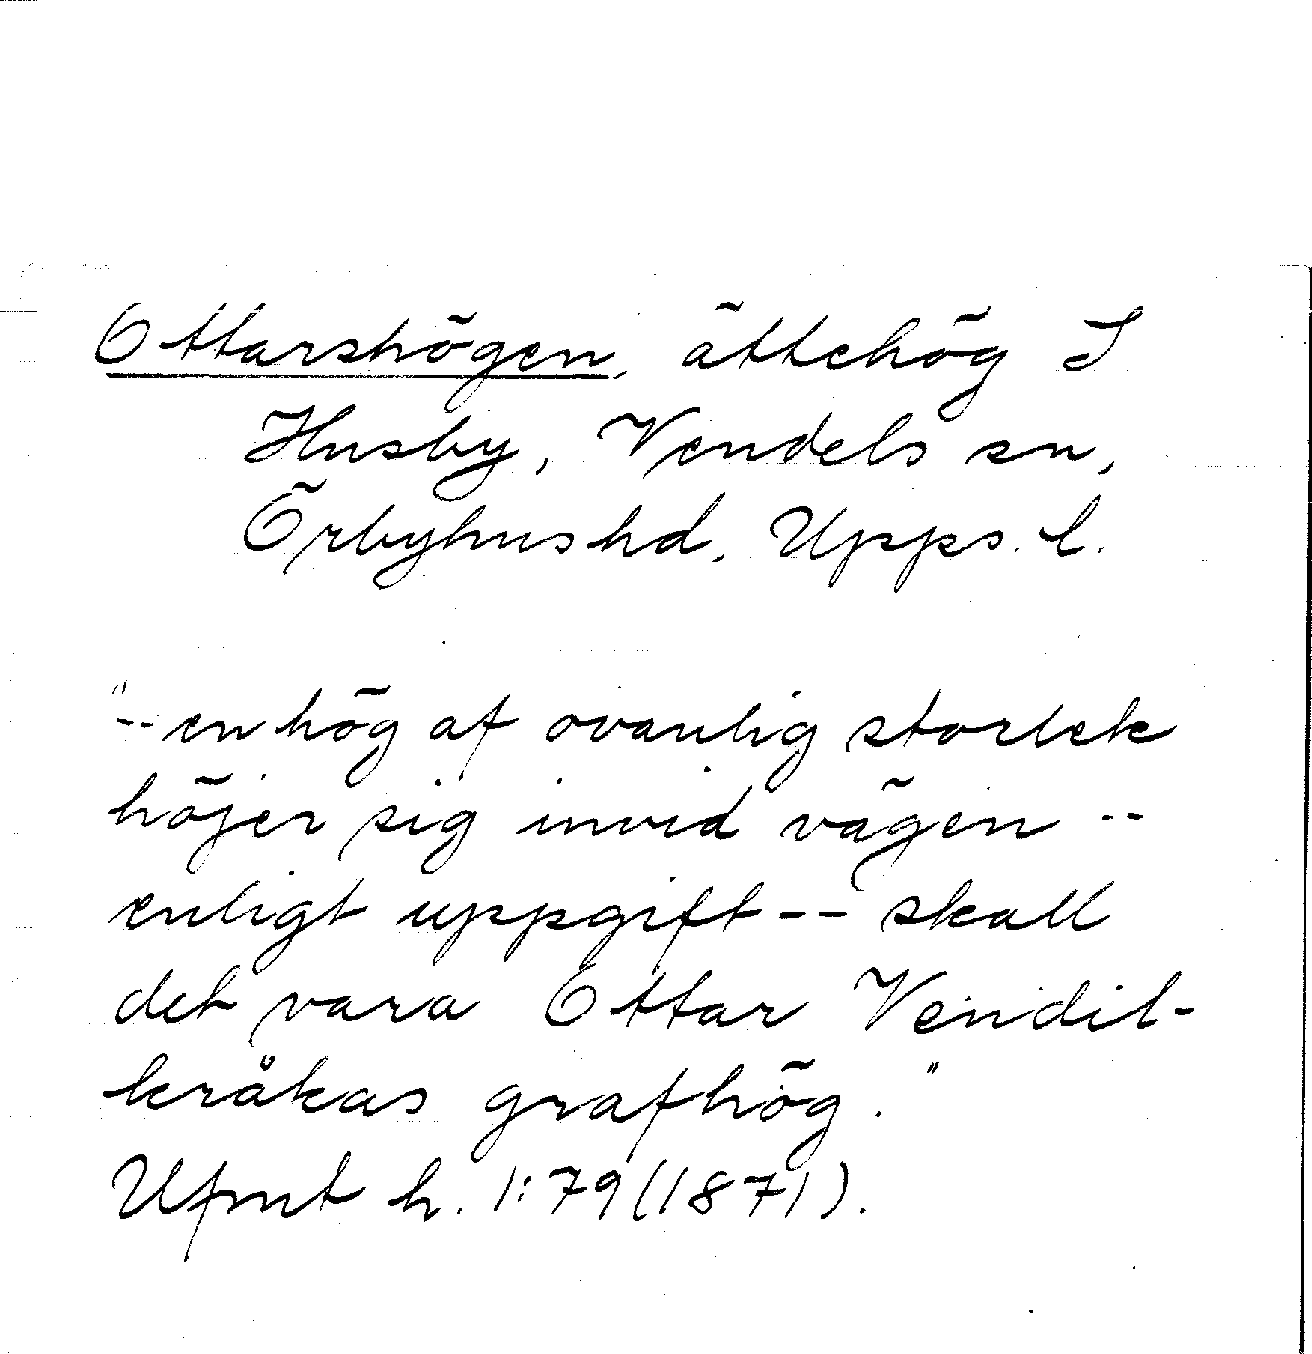 Ottarshögen, ättehög S
Husby, Vendels sn,
Örbyhus hd, Upps. l.
"-- en hög af ovanlig storlek
höjer sig invid vägen --
enligt uppgift -- skall
det vara Ottar Vendil-
kråkas grafhög."
Ufmt h. 1:79 (1871).